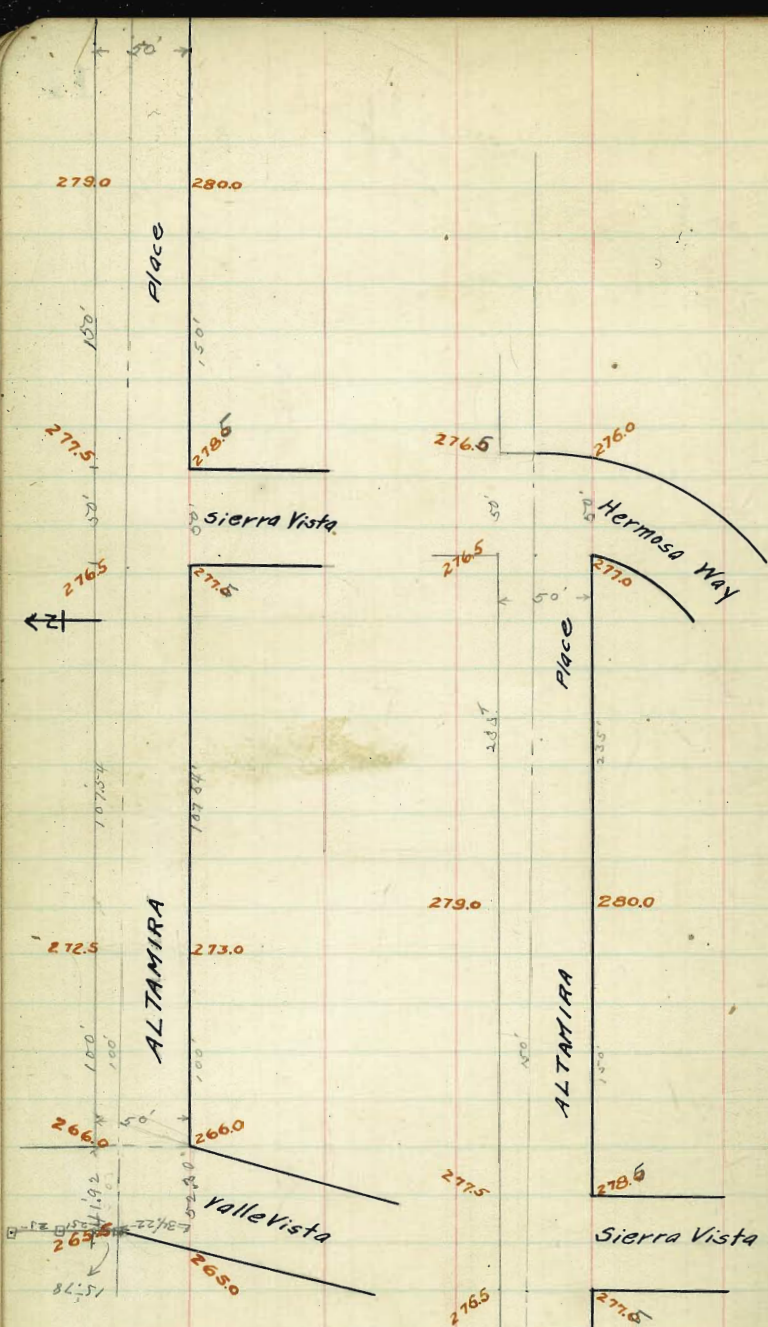 50'
279.0
280.0
Place
150'
150'
277.5
278.5
50'
50'
Sierra Vista
276.5
277.5
N
107.54
107.54'
ALTAMIRA
272.5
273.0
100'
100'
100'
50'
266.0
266.0
41.92
52.30'
Valle Vista
25'
265.5
265.0
15.78
276.5
276.0
50'
50'
Hermosa Way
276.5
277.0
50'
Place
235'
235'
279.0
280.0
ALTAMIRA
150'
150'
277.5
278.5
Sierra Vista
276.5
277.5